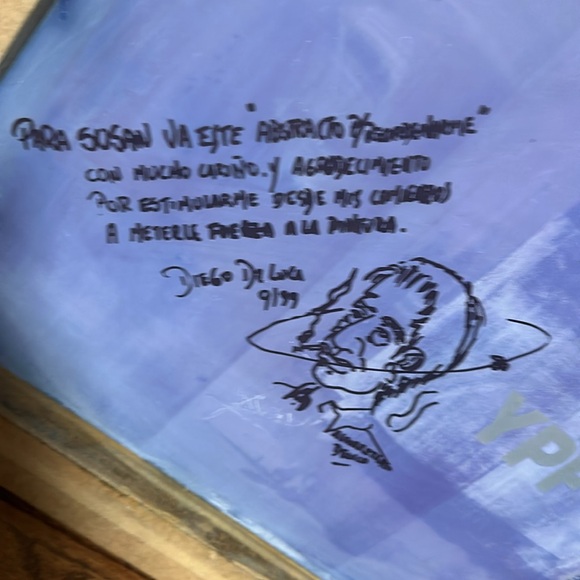 PARA SUSAN VA ESTE "ABSTRACTO
CON MUCHO CARIÑO. Y AGRADECIMIENTO
POR ESTIMULARME DESDE MIS COMIENZOS
A METERLE FUERZA A LA PINTURA.
DIEGO DE LUCA
9/99
YPF